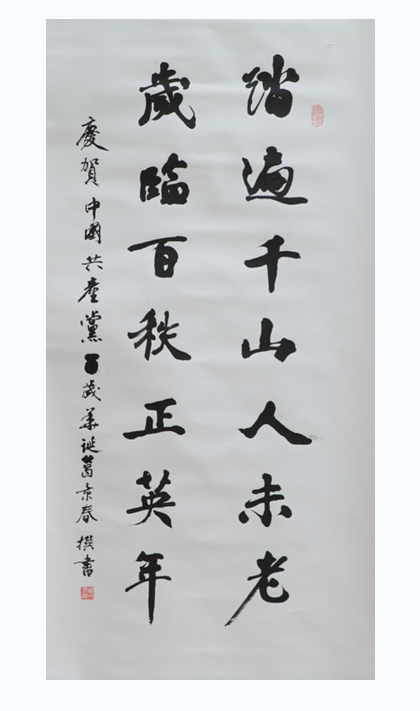 踏遍千山人未老
歲臨百秩正英年
慶賀中國共產黨百歲華誕葛景春撰書